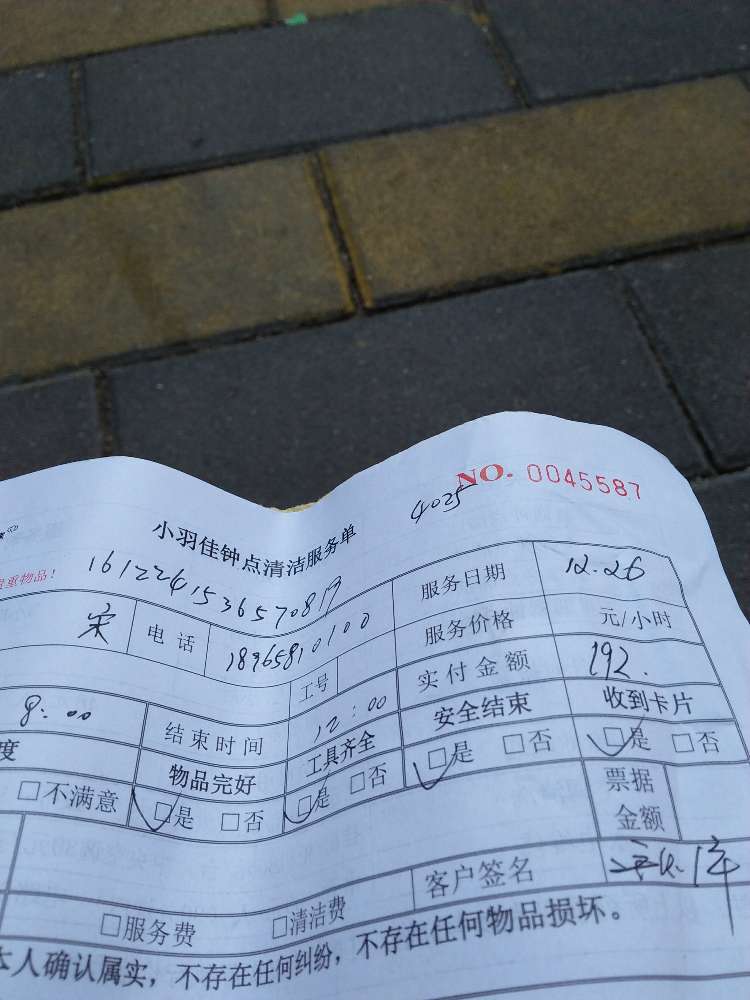 NO. 0045587
4025
小羽佳钟点清洁服务单
贵重物品!
1612241536570817
宋 电话 18965810100 服务日期 12.26
工号 服务价格 元/小时
8:00 结束时间 12:00 实付金额 192.
度 物品完好 工具齐全 安全结束 收到卡片
□不满意 □是 □否 □是 □否 □是 □否 □是 □否
票据
金额
□服务费 □清洁费 客户签名
本人确认属实,不存在任何纠纷,不存在任何物品损坏。